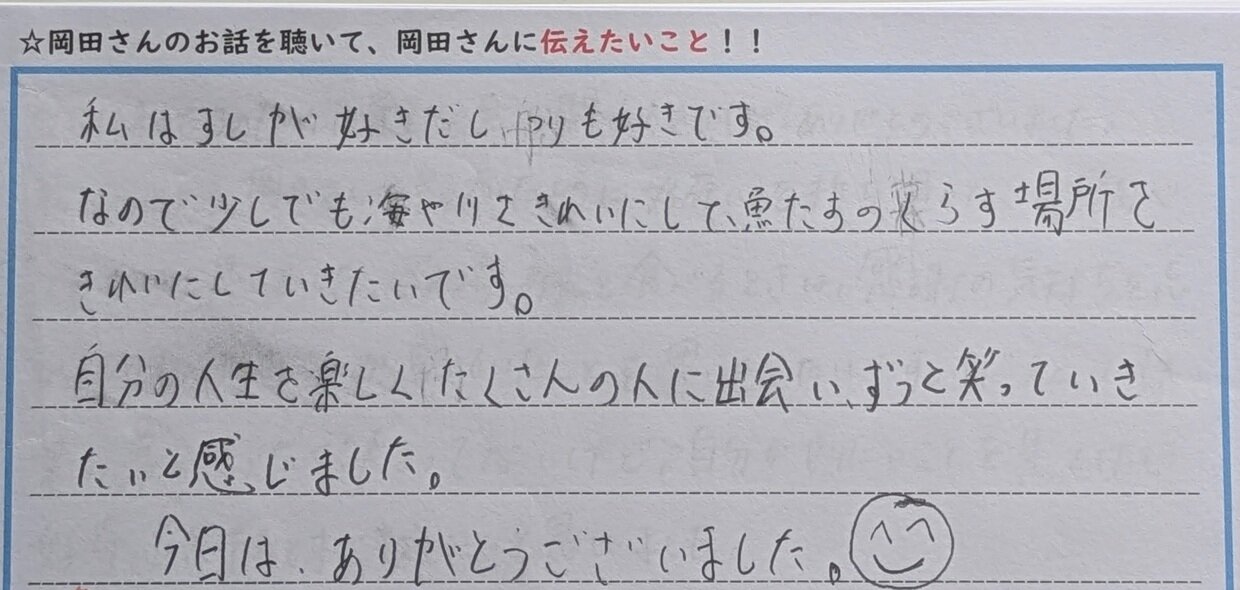 ☆岡田さんのお話を聴いて、岡田さんに伝えたいこと！！
私はすしが好きだし、釣りも好きです。
なので少しでも海や川をきれいにして、魚たちの暮らす場所を
きれいにしていきたいです。
自分の人生を楽しく、たくさんの人に出会い、ずっと笑っていき
たいと感じました。
今日は、ありがとうございました。